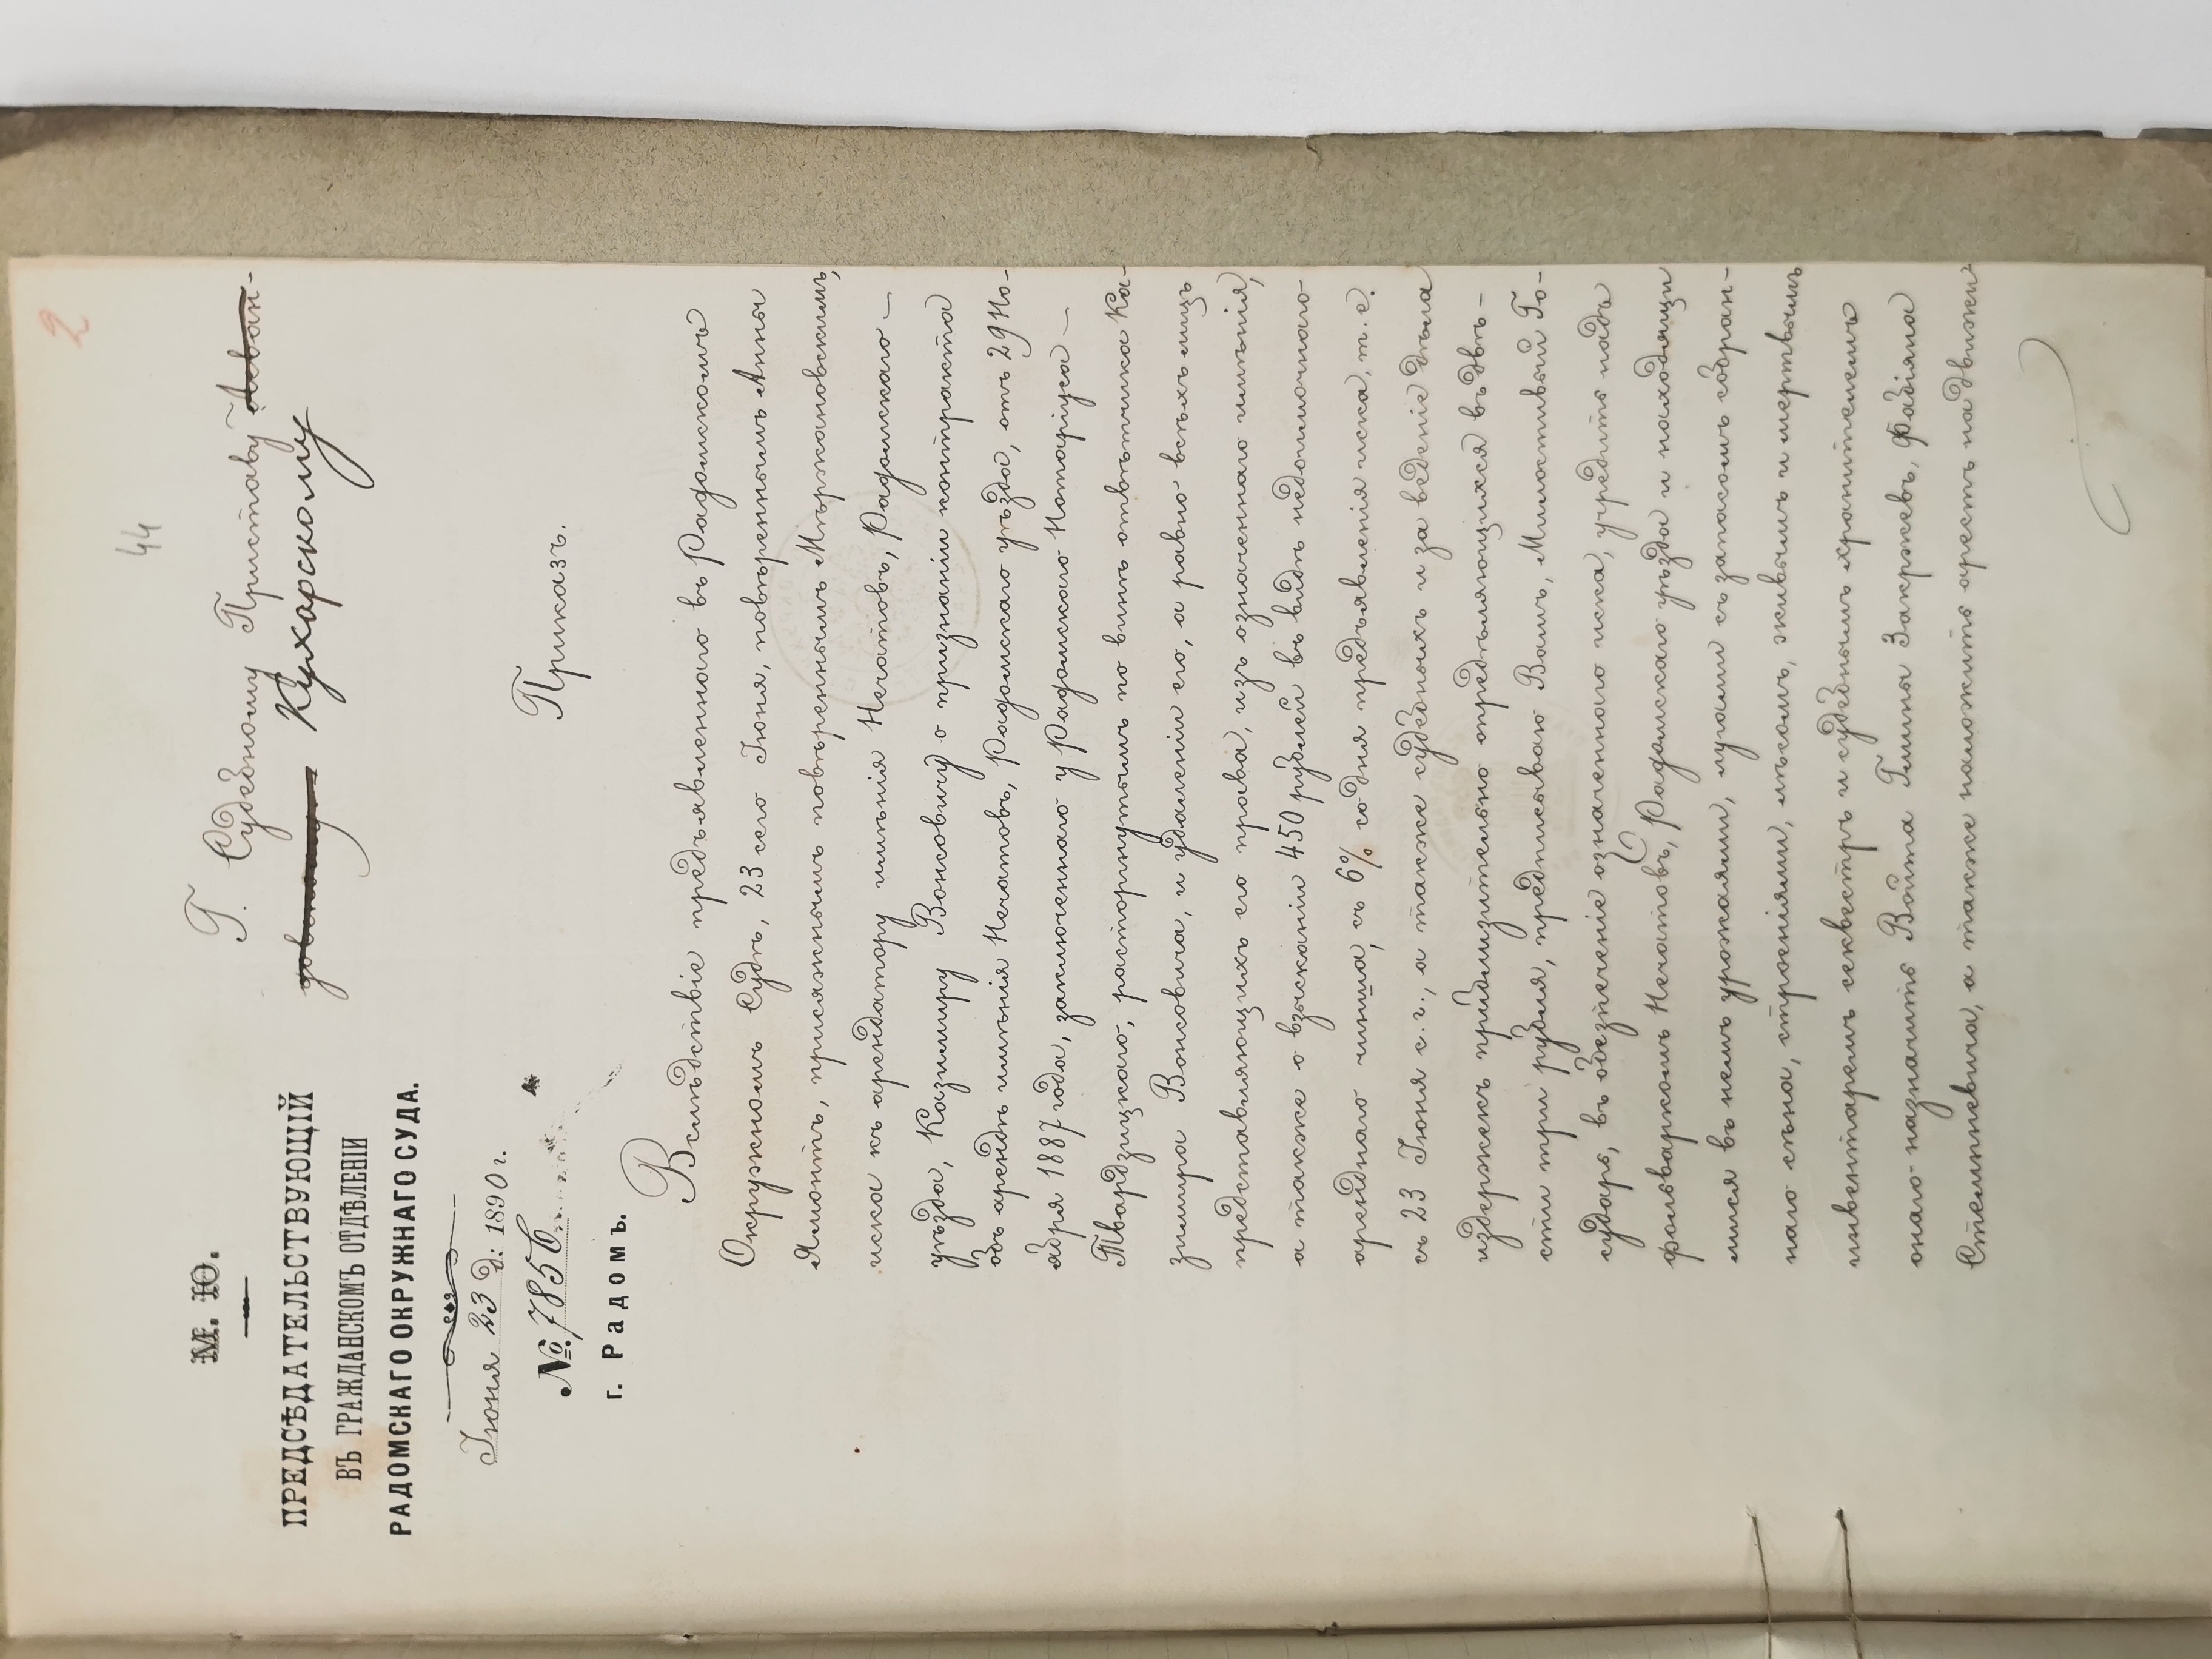 2
44
М. Ю.
ПРЕДСѢДАТЕЛЬСТВУЮЩІЙ
ВЪ ГРАЖДАНСКОМЪ ОТДѢЛЕНІИ
РАДОМСКАГО ОКРУЖНАГО СУДА.
Іюня 23 д. 1890 г.
№ 7856
г. Радомъ.
Г. Судебному Приставу Леван-
довскому Кухарскому
Приказъ.
Вслѣдствіе предъявленнаго въ Радомскомъ
Окружномъ Судѣ, 23 сего Іюня, повѣреннымъ Анны
присяжнымъ повѣреннымъ Мѣржановскимъ,
иска къ арендатору имѣнія Нечатовъ, Радомскаго
уѣзда, Казимиру Вонсовичу о признаніи контракта
объ арендѣ имѣнія Нечатовъ, Радомскаго уѣзда, отъ 29 Но-
ября 1887 года, заключеннаго у Радомскаго Нотаріуса
Твардзицкаго, расторгнутымъ по винѣ отвѣтчика Ка-
зимира Вонсовича, и удаленіи его, а равно всѣхъ лицъ
представляющихъ его права, изъ означеннаго имѣнія,
а также о взысканіи 450 рублей въ видѣ недоимочнаго
аренднаго чинша, съ 6% со дня предъявленія иска, т. е.
съ 23 Іюня с. г., а также судебныхъ и за веденіе дѣла
издержекъ приблизительно опредѣляющихся въ двѣ-
сти три рубля, предписываю Вамъ, Милостивый Го-
сударь, въ обезпеченіе означеннаго иска, учредить надъ
фольваркомъ Нечатовъ, Радомскаго уѣзда и находящи
мися въ немъ урожаями, лугами съ запасомъ собран-
наго сѣна, строеніями, лѣсомъ, живымъ и мертвымъ
инвентаремъ секвестръ и судебнымъ хранителемъ
онаго назначить Войта Гмины Закржевъ, Фабіяна
Стемпневича, а также наложить арестъ на движи